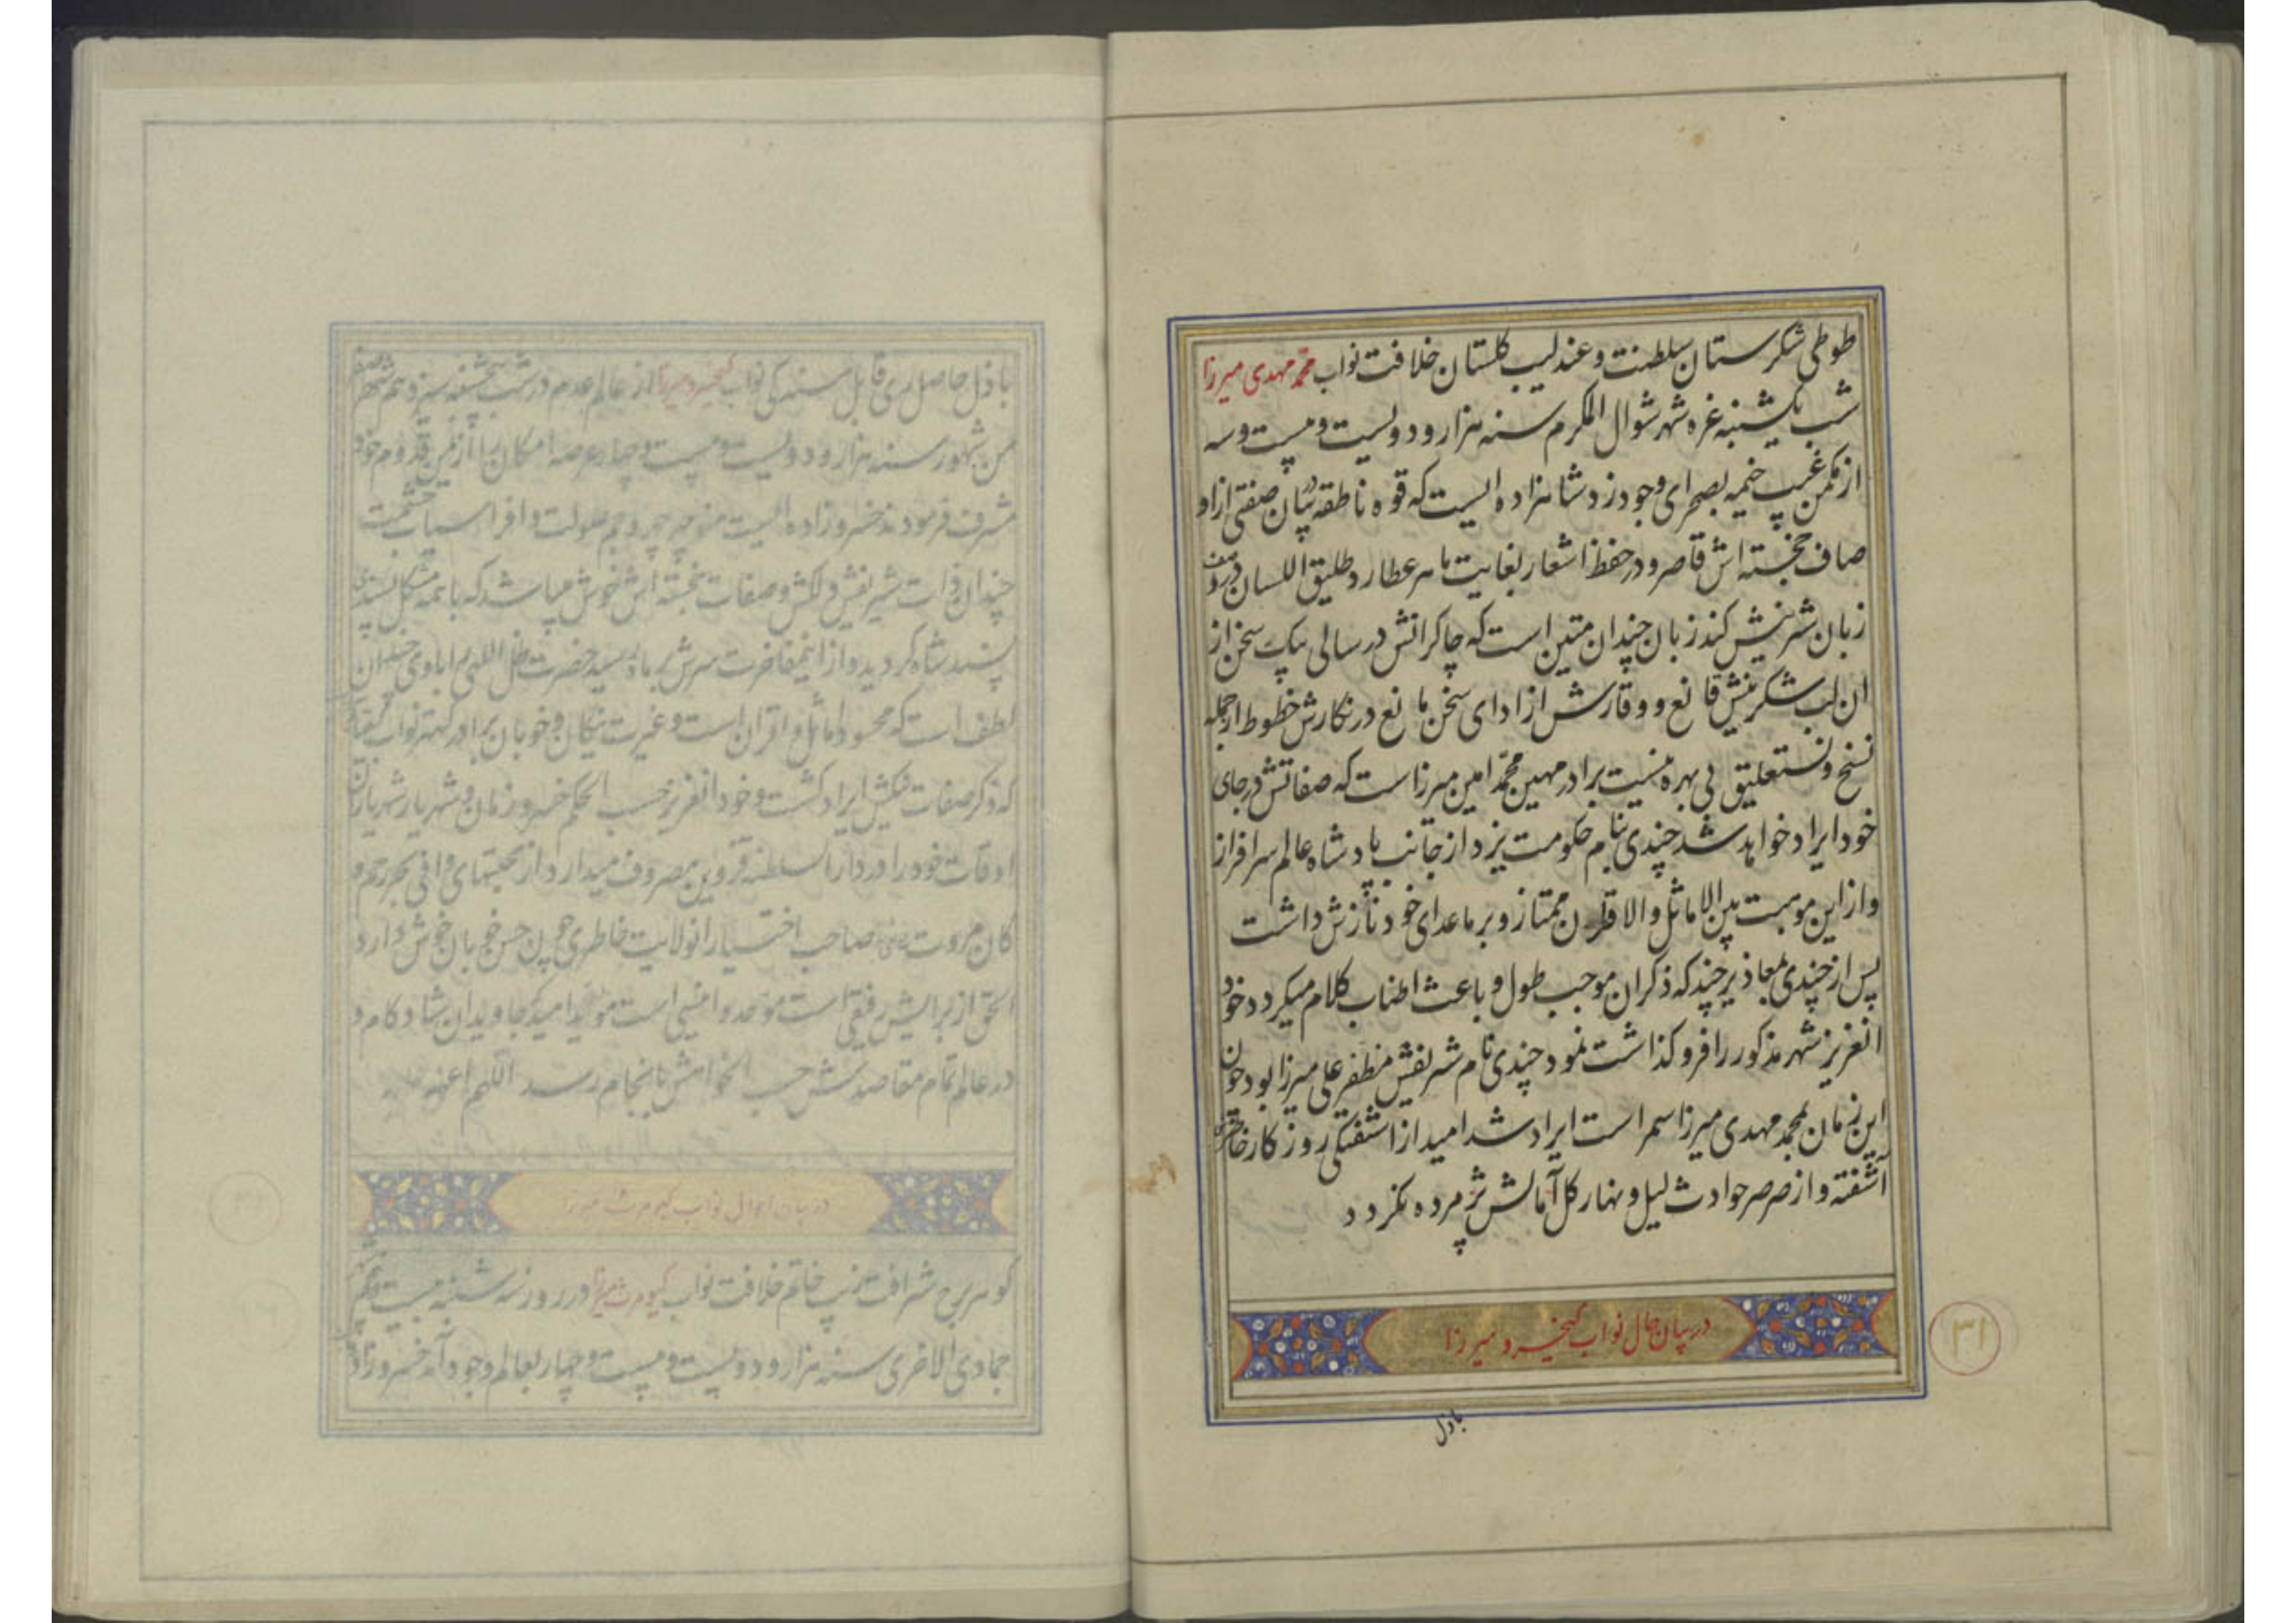 طوطی شکرستان سلطنت و عندلیب کلستان خلافت نواب محمد مهدی میرزا
شب یکشنبه غره شهر شوال المکرم سنه هزار و دویست و بیست و سه
از مکمن غیب خیمه بصحرای وجود زد شاهزاده ایست که قوه ناطقه در بیان صفتی از او
صاف خجسته اش قاصر و در حفظ اشعار بغایت ماهر عطارد طلیق اللسان در وصف
زبان شیرینش کند زبان چندان متین است که چاکرانش در سالی بیک سخن از
ان لب شکرینش قانع و وقارش از ادای سخن مانع در نکارش خطوط از جمله
نسخ و نستعلیق بی بهره نیست برادر مهین محمد امین میرزاست که صفاتش در جای
خود ایراد خواهد شد چندی بنام حکومت یزد از جانب پادشاه عالم سرافراز
و از این موهبت بین الاماثل والاقران ممتاز و بر ماعدای خود نازش داشت
پس از چندی بمعاذیر چند که ذکر ان موجب طول و باعث اطناب کلام میکردد خود
انعزیز شهر مذکور را فروکذاشت نمود چندی نام شریفش مظفر علی میرزا بود چون
این زمان بمحمد مهدی میرزا سمر است ایراد شد امید از اشفتکی روزکار خاطرش
آشفته و از صرصر حوادث لیل و نهار کل آمالش پژمرده نکردد
در بیان حال نواب کیخسرو میرزا
باذل
۳۱
باذل حاصل ری قابل مسند کی نواب کیخسرو میرزا از عالم عدم در شب پنجشنبه سیزدهم شهر صفر
من شهور سنه هزار و دویست و بیست و چهار عرصه امکان را از یمن قدوم خود
شرف فرمودند خسروزاده ایست منوچهر چهر و جم صولت و افراسیاب حشمت
چندان ذات شریفش دلکش و صفات خجسته اش خوش میباشد که با همه مشکل پسندی
پسند شاه کردیده و از این مفاخرت سرش بماه رسید حضرت ظل اللهی را با وی چندان
لطف است که محسود اماثل و اقران است و غیرت نیکان و خوبان برادر کهتر نواب
که ذکر صفات نیکش ایراد کشت و خود انعزیز حسب الحکم خسرو زمان و شهریار شهریاران
اوقات خود را در دارالسلطنه قزوین مصروف میدارد از محبتهای وافی بحر رحم و
کان مروت صاحب اختیار انولایت خاطری چون حسن خوبان خوش دارد
الحق از برایش رفیقی است موحد و انیسی است مؤید امید که جاویدان شاد کام و
در عالم تمام مقاصدش حسب الخواهش بانجام رسد اللهم
در بیان احوال نواب کیومرث میرزا
کوهر برج شرافت زیب خاتم خلافت نواب کیومرث میرزا در روز سه شنبه بیست و پنجم
جمادی الاخری سنه هزار و دویست و بیست و چهار بعالم وجود آمد خسروزاده